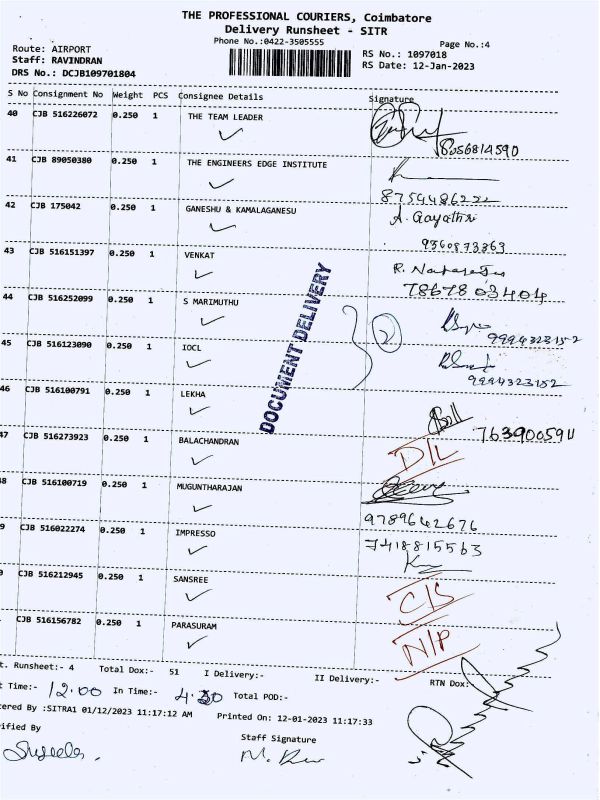 THE PROFESSIONAL COURIERS, Coimbatore
Delivery Runsheet - SITR
Phone No.:0422-3505555
Page No.:4
Route: AIRPORT
RS No.: 1097018
Staff: RAVINDRAN
RS Date: 12-Jan-2023
DRS No.: DCJB109701804
S No Consignment No Weight PCS Consignee Details Signature
40 CJB 516226072 0.250 1 THE TEAM LEADER
8056814590
41 CJB 89050380 0.250 1 THE ENGINEERS EDGE INSTITUTE
8754486222
42 CJB 175042 0.250 1 GANESHU & KAMALAGANESU A. Gayathri
9360873363
43 CJB 516151397 0.250 1 VENKAT
7867803404
44 CJB 516252099 0.250 1 S MARIMUTHU
2
9994323152
45 CJB 516123090 0.250 1 IOCL
9994323152
DOCUMENT DELIVERY
46 CJB 516100791 0.250 1 LEKHA
7639005911
47 CJB 516273923 0.250 1 BALACHANDRAN D/L
8 CJB 516100719 0.250 1 MUGUNTHARAJAN
9789642676
9 CJB 516022274 0.250 1 IMPRESSO 7418815563
CJB 516212945 0.250 1 SANSREE C/S
CJB 516156782 0.250 1 PARASURAM N/P
t. Runsheet:- 4 Total Dox:- 51 I Delivery:- II Delivery:- RTN Dox:
t Time:- 12.00 In Time:- 4.30 Total POD:-
tered By :SITRA1 01/12/2023 11:17:12 AM Printed On: 12-01-2023 11:17:33
ified By Staff Signature